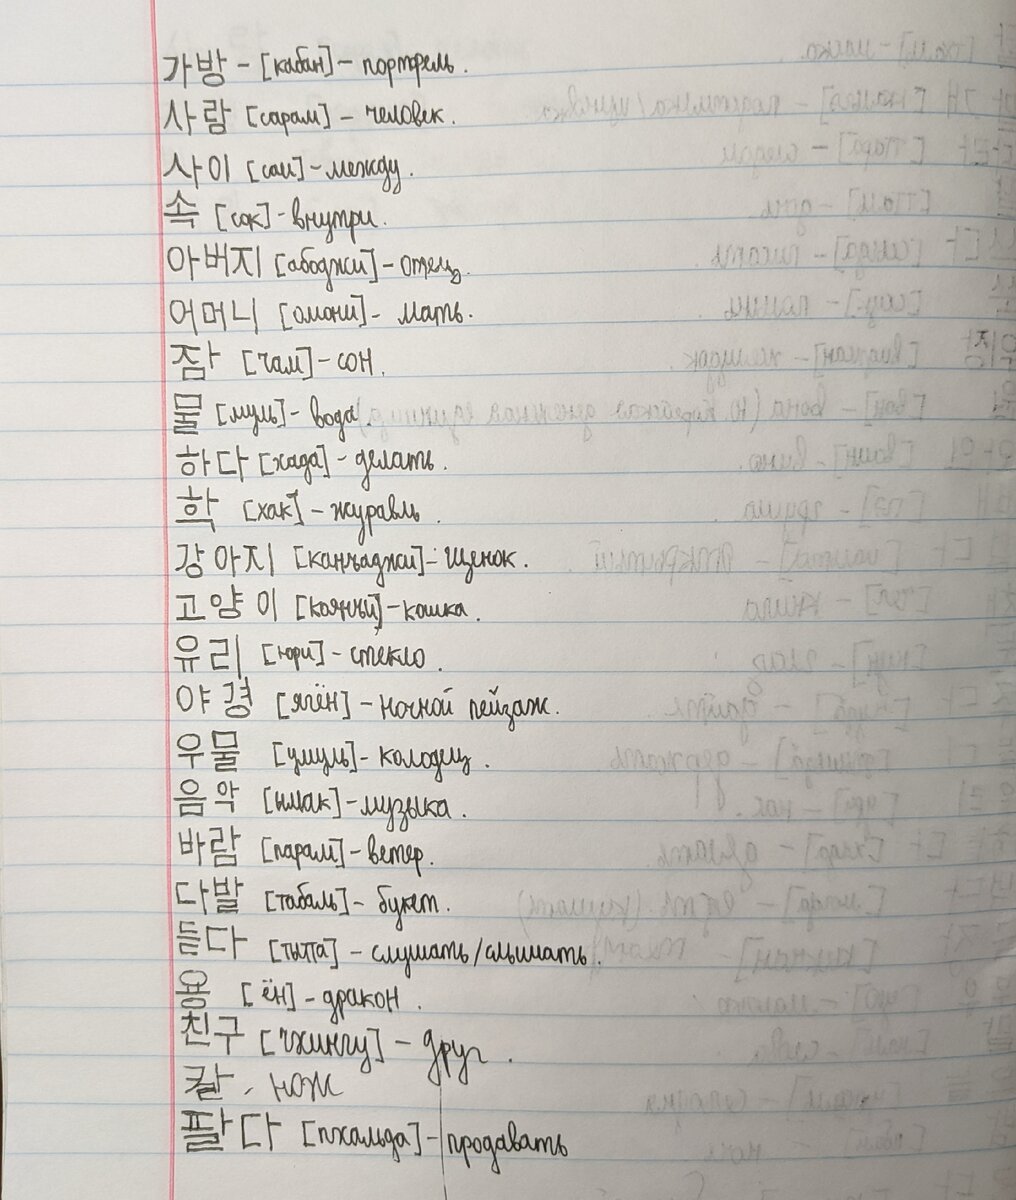 가방 - [кабан] - портфель.
사람 [сарам] - человек.
사이 [саи] - между.
속 [сок] - внутри.
아버지 [абоджи] - отец.
어머니 [омони] - мать.
잠 [чам] - сон.
물 [муль] - вода.
하다 [хада] - делать.
학 [хак] - журавль.
강아지 [канъаджи] - щенок.
고양이 - кошка.
유리 [юри] - стекло.
야경 [ягён] - ночной пейзаж.
우물 [умуль] - колодец.
음악 [ымак] - музыка.
바람 [парам] - ветер.
다발 [табаль] - букет.
듣다 [тытта] - слушать/слышать.
용 [ён] - дракон.
친구 [чхингу] - друг.
칼 - нож
팔다 [пхальда] - продавать